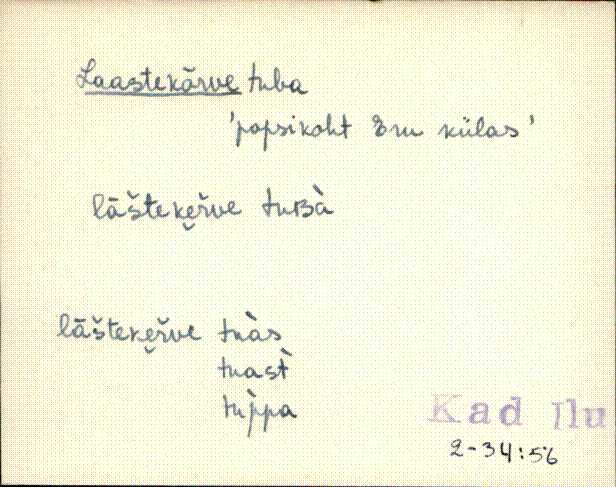 Laastekõrve tuba
'popsikoht Eru külas'
lāštekẹršve tuʙà
lāštekẹršve tuàs
tuast̀
tùppa
Kad Ilu
2-34:56